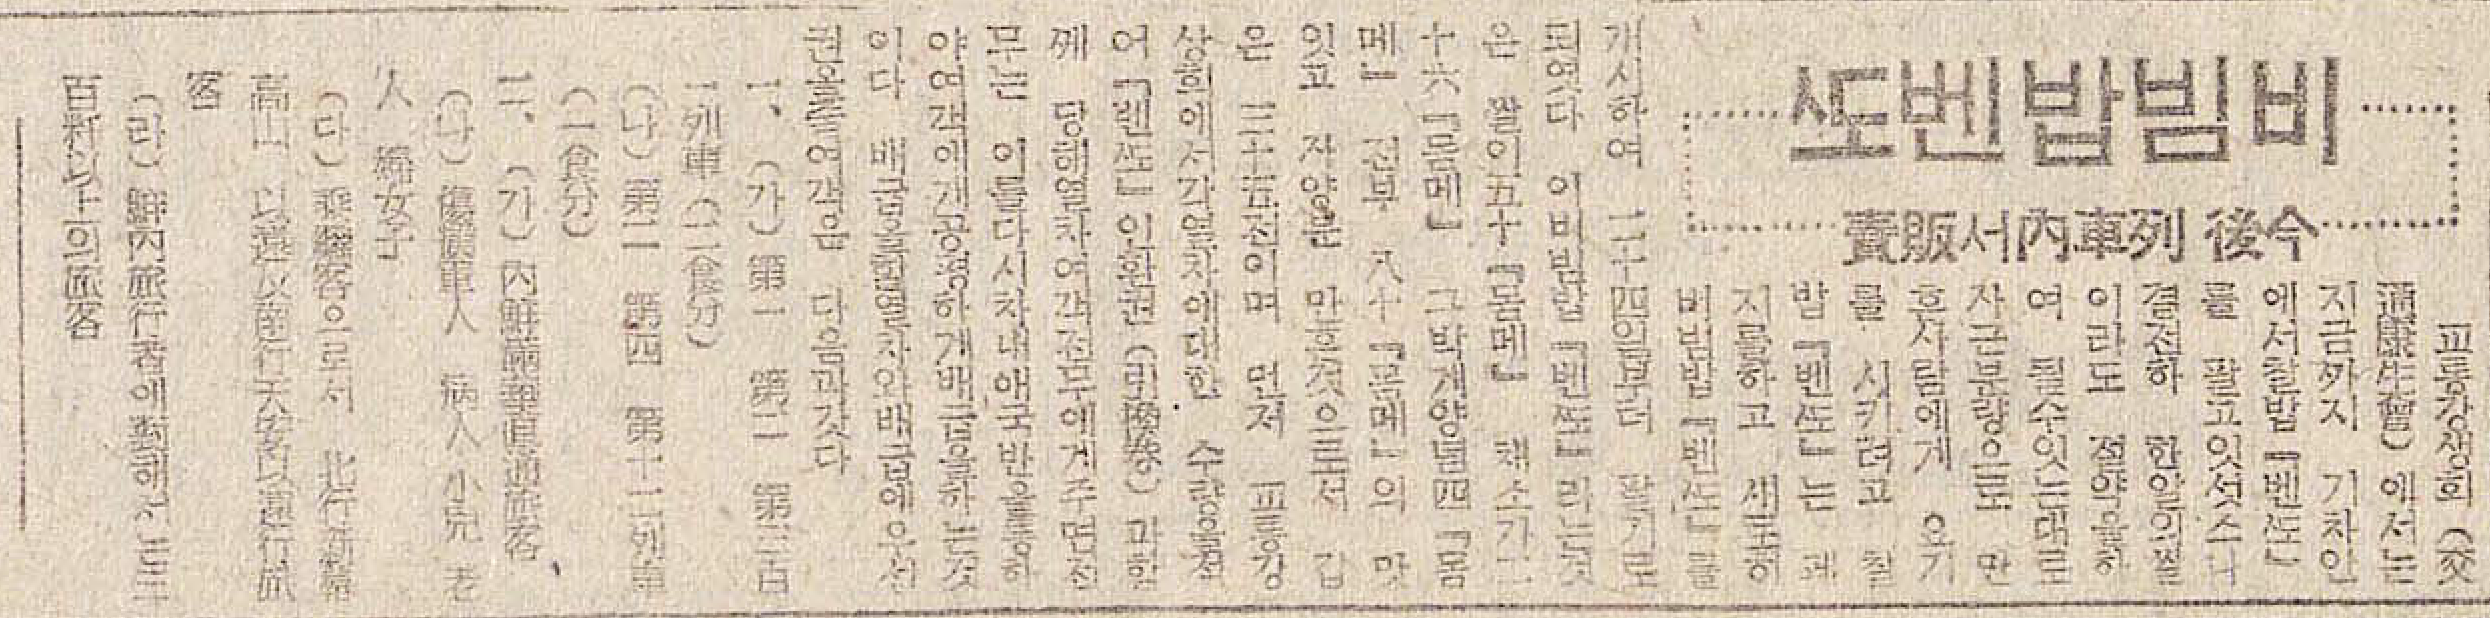 비빔밥벤또
今後 列車內서販賣
교통강생회 (交
通康生會)에서는
지금까지 기차안
에서찰밥『벤또』
를 팔고잇섯스나
결전하 한알의쌀
이라도 절약을하
여 될수잇는대로
자근분량으로 만
흔사람에게 요기
를 시키려고 찰
밥『벤또』는 폐
지를하고 새로히
비빔밥『벤또』를
개시하여 二十四일부터 팔기로
되엿다 이비빔밥『벤또』만드는것
은 쌀이五十『몸메』 채소가二
十六『몸메』 그박게양념四『몸
메』 전부 八十『몸메』의 맛
잇고 자양분 만흔것으로서 갑
은 三十五전이며 먼저 교통강
생회에서각렬차에대한 수량을정
어『벤또』인환권 (引換券)
께 당해렬차여객전무에게주면전
무는 이를다시차내애국반을통하
야여객에게공평하게배급을하는것
이다 배급을할렬차와배급에우선
권을둘여객은 다음과갓다
一、(가) 第一 第二 第三百
二列車 (二食分)
(나) 第二 第四 第十二列車
(一食分)
二、(가) 內鮮滿華直通旅客
(나) 傷痍軍人 病人 小兒 老
人 婦女子
(다) 乘繼客으로서 北行新幕
高山 以遠以南行天安以遠行旅
客
(라) 鮮內旅行者에對해서는三
百粁以上의旅客